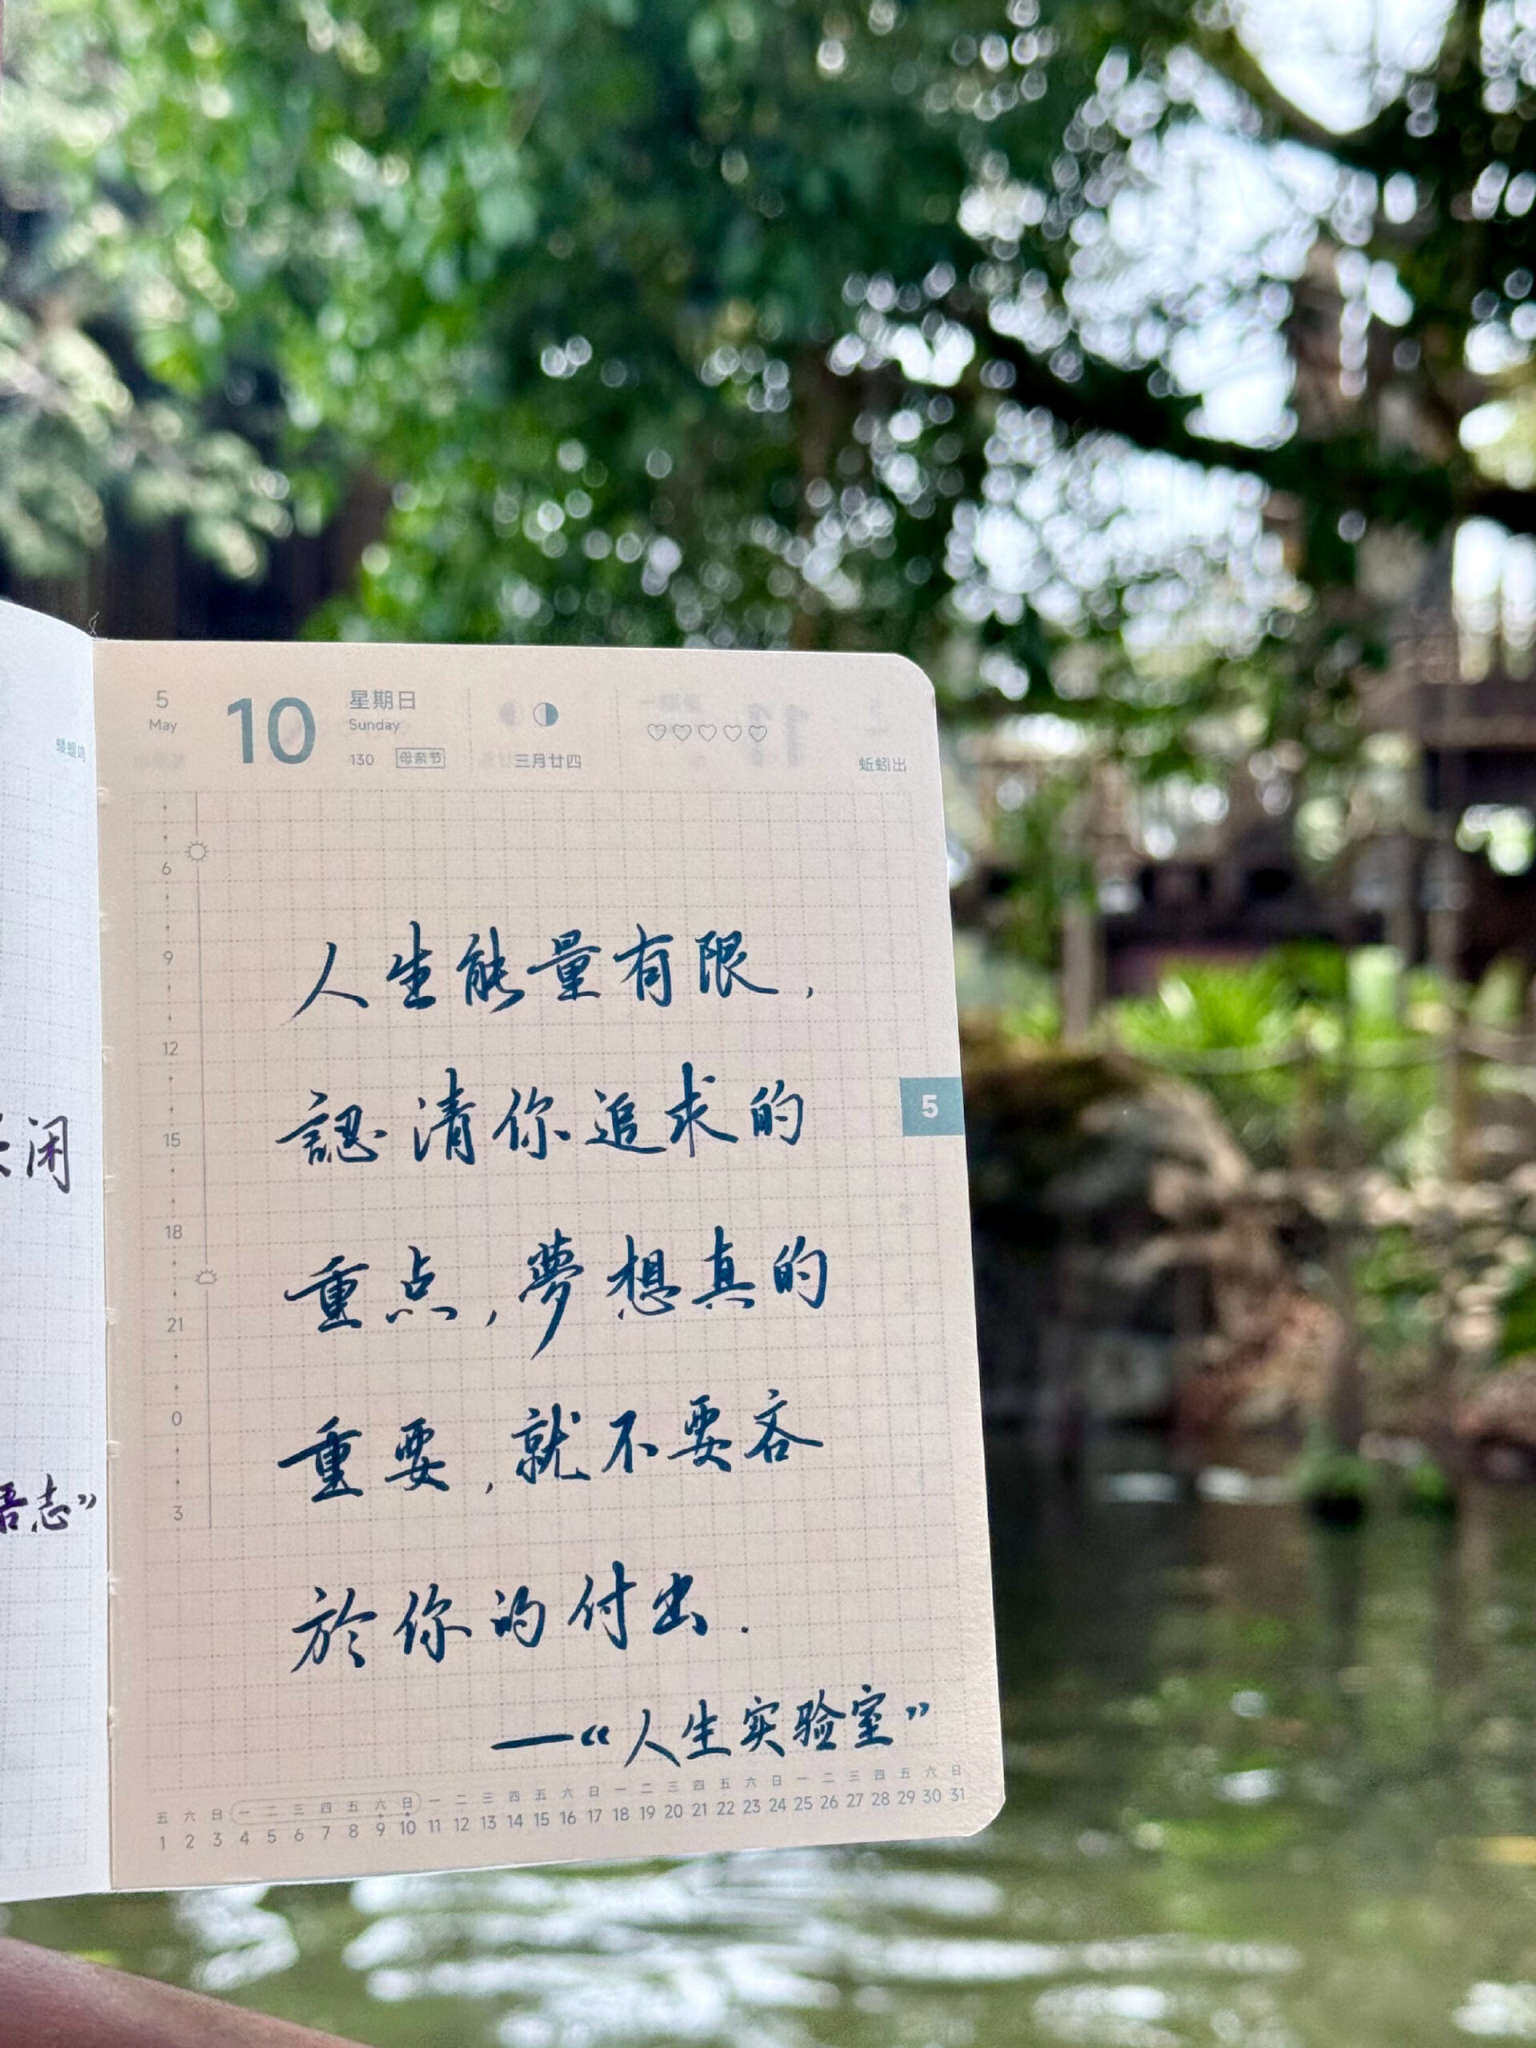 5 10 星期日
May Sunday
130 母亲节 三月廿四 ♡♡♡♡♡ 蚯蚓出
6
9
12
15
18
21
0
3
人生能量有限，
認清你追求的
重点，夢想真的
重要，就不要吝
於你的付出.
——“人生实验室”
5
五 六 日 一 二 三 四 五 六 日 一 二 三 四 五 六 日 一 二 三 四 五 六 日 一 二 三 四 五 六 日
1 2 3 4 5 6 7 8 9 10 11 12 13 14 15 16 17 18 19 20 21 22 23 24 25 26 27 28 29 30 31
闲
志”